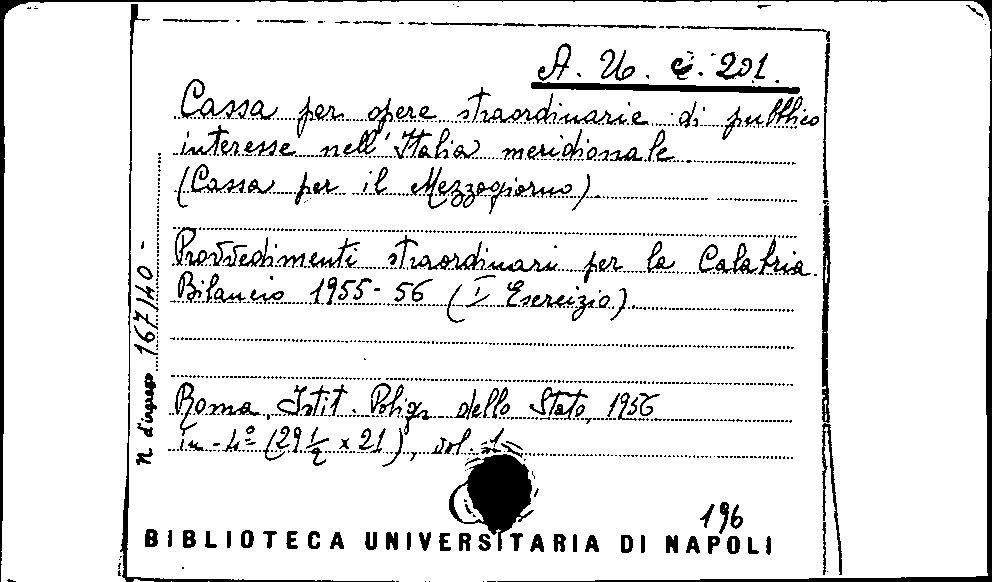 A. U. C. 201.
Cassa per opere straordinarie di pubblico
interesse nell'Italia meridionale.
(Cassa per il Mezzogiorno).
Provvedimenti straordinari per la Calabria.
Bilancio 1955-56 (I Esercizio).
Roma, Istit. Poligr. dello Stato, 1956
in-4º (29 1/2 x 21), vol. 1
N. d'ingresso 167140-
196
BIBLIOTECA UNIVERSITARIA DI NAPOLI